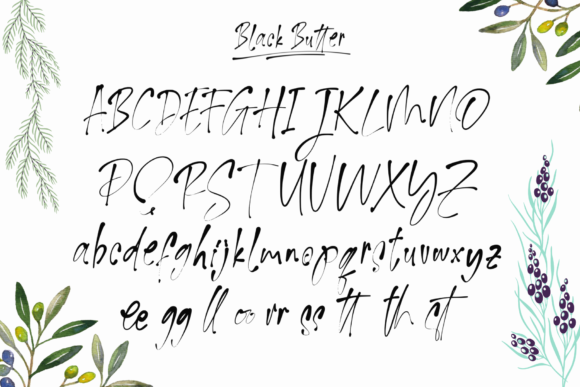 Black Butter
ABCDEFGHIJKLMNO
PQRSTUVWXYZ
abcdefghijklmnopqrstuvwxyz
ee gg ll oo rr ss tt th st